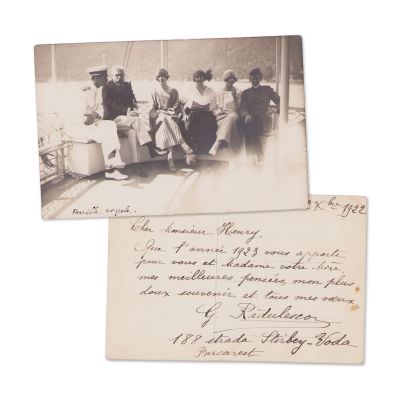 Famille royale.
Xbre 1922
Cher monsieur Henry,
Que l'année 1923 vous apporte
pour vous et Madame votre mère
mes meilleures pensées, mon plus
doux souvenir et tous mes vœux
G. Rădulescu
188 strada Stirbey-Voda
Bucarest